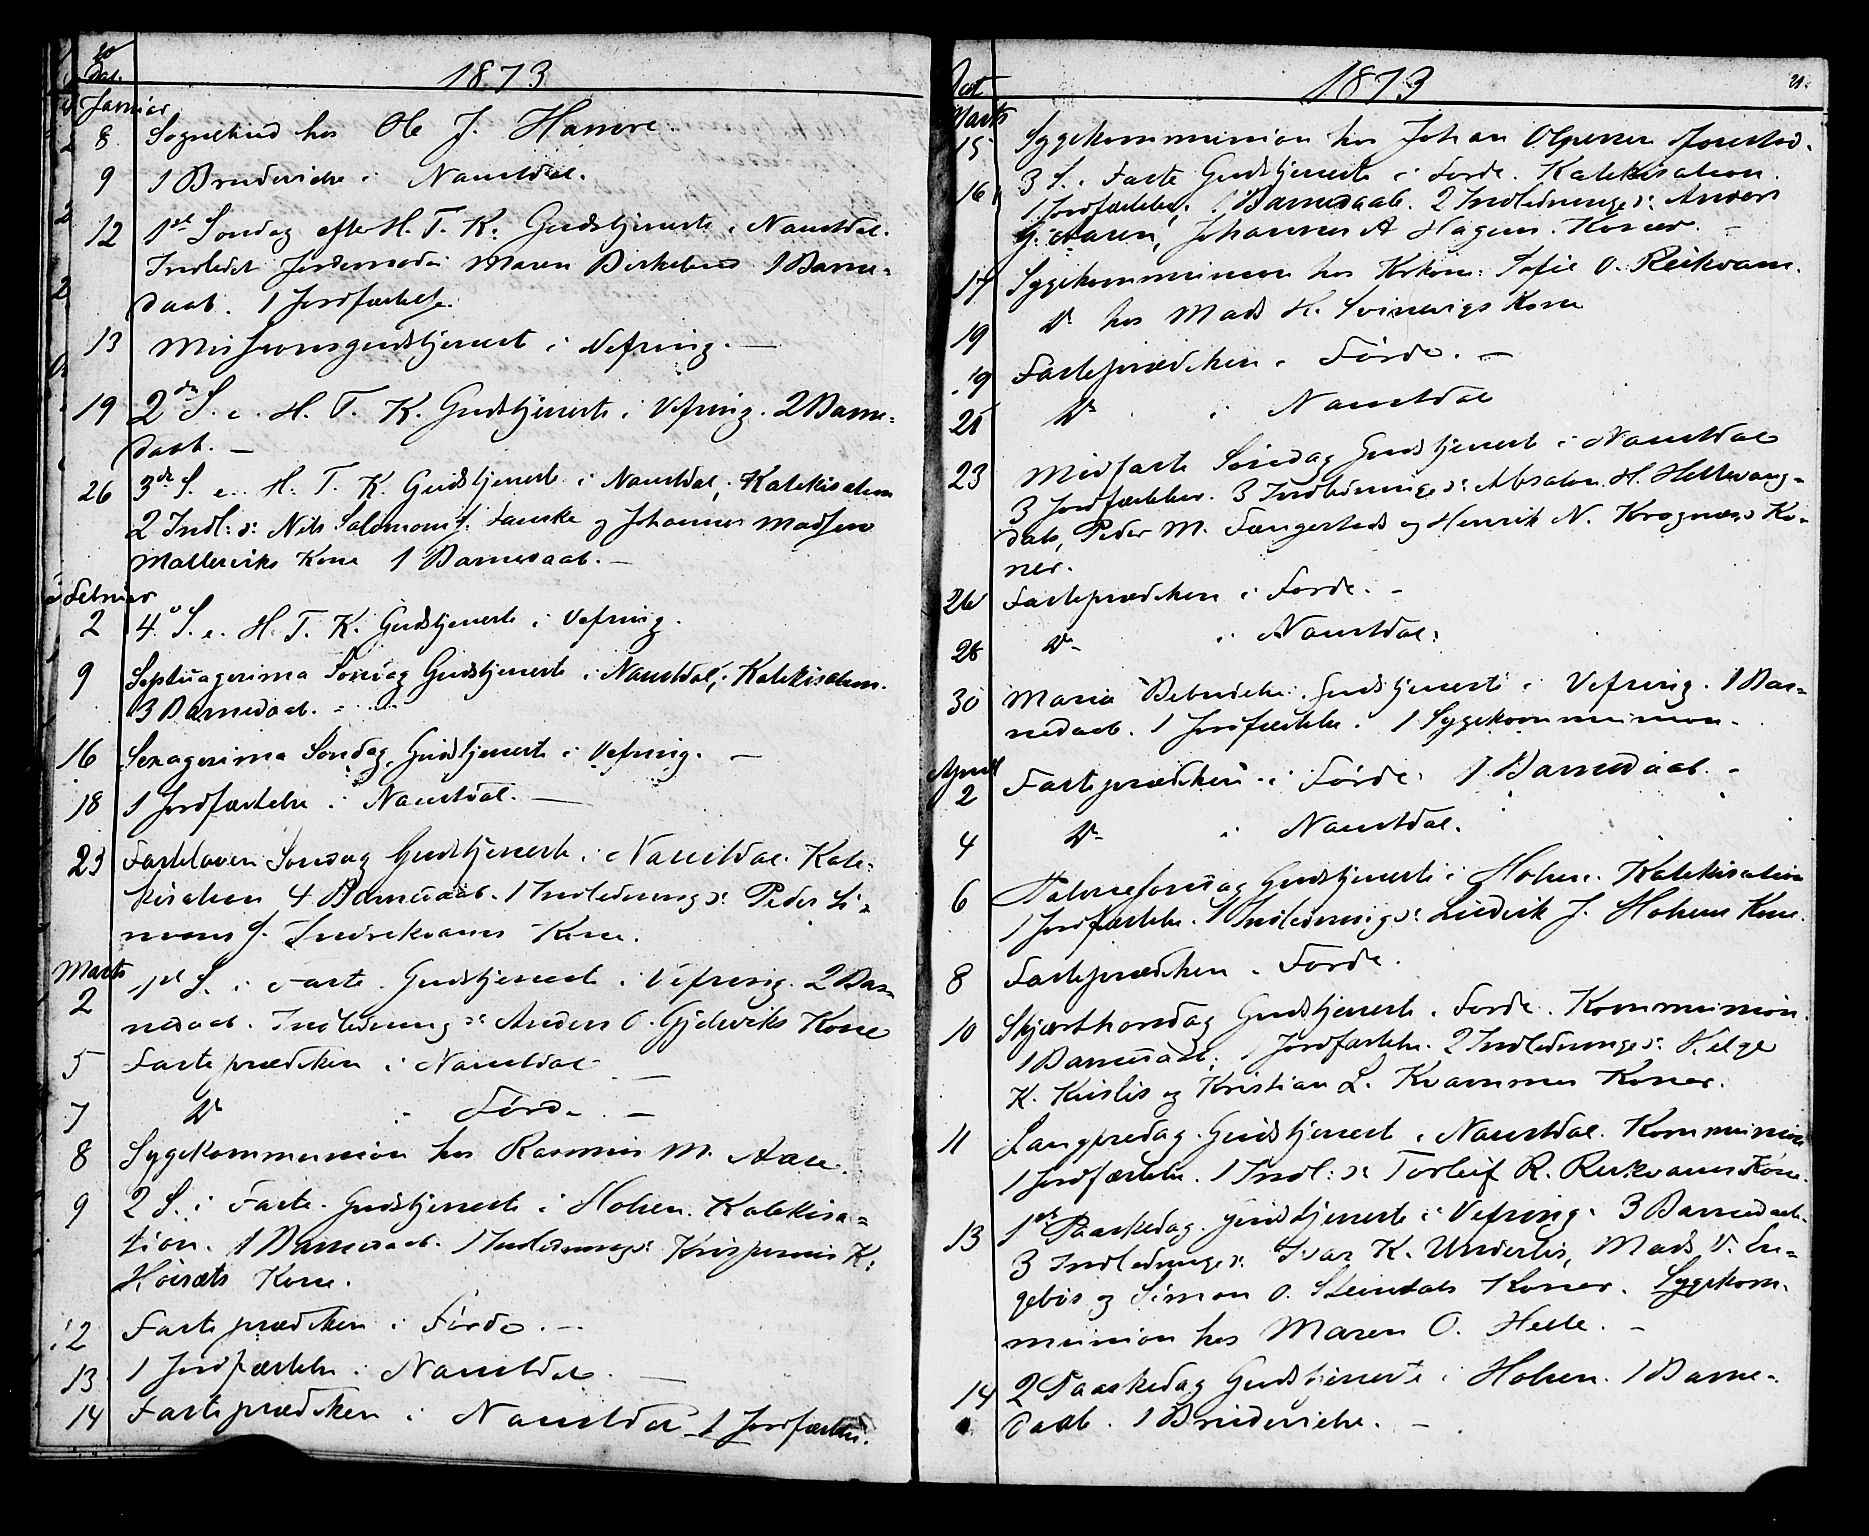 20
Dat.
1873
Januar
8. Sognebud hos Ole J. Hamre.
9 1 Brudevielse i Naustdal.
12 1ste Søndag efter H. T. K. Gudstjeneste i Naustdal.
Indledet Jordemoder Maren Birkeland 1 Barne-
daab. 1 Jordfæstelse.
13 Missionsgudstjenest i Vefring. —
19 2den S. e. H. T. K. Gudstjeneste i Vefring. 2 Barne-
daab. —
26 3die S. e. H. T. K. Gudstjeneste i Naustdal; Katekisation
2 Indl: ɔ: Nils Salomons. og Johannes Madsen
Kone 1 Barnedaab. —
Februar
2 4. S. e. H. T. K. Gudstjeneste i Vefring.
9 Septuagesima Søndag Gudstjeneste i Naustdal; Katekisation.
3 Barnedaab.
16 Sexagesima Søndag, Gudstjeneste i Vefring. —
18 1 Jordfæstelse i Naustdal. —
23 Fastelavens Søndag Gudstjeneste i Naustdal. Kate-
kisation 4 Barnedaab. 1 Indledning ɔ: Peder Si-
mons. Indrekvams Kone.
Marts
2 1ste S. i Faste. Gudstjeneste i Vefring. 2 Bar-
nedaab. Indledning ɔ: Anders O. Gjelsviks Kone
5 Fasteprædiken i Naustdal —
7 Do i Førde. —
8 Sygekommunion hos Rasmus M. Aase.
9 2 S. i Faste. Gudstjeneste i Holsen. Katekisa-
tion. 1 Barnedaab. 1 Indledning ɔ: K.
Kone.
12 Fasteprædiken i Førde. —
13 1 Jordfæstelse i Naustdal. —
14 Fasteprædiken i Naustdal 1 Jordfæstelse.
Dat
1873
21.
Marts
15 Sygekommunion hos Johan
16 3 S. i Faste Gudstjeneste i Førde. Katekisation.
1 Jordfæstelse. 1 Barnedaab. 2 Indledninger ɔ: Anders
Johannes A Hagens Koner. —
17 Sygekommunion hos Sofie O. Reikvam.
19 Do hos Mads H. Svinevigs Kone
19 Fasteprædiken i Førde. —
21 Do i Naustdal
23 Midfaste Søndag Gudstjeneste i Naustdal
3 Jordfæstelser. 3 Indledninger ɔ: Absalon H. Hellevang-
dals, Peder M. og Henrik N. Ko-
ner.
26 Fasteprædiken i Førde. —
28 Do i Naustdal.
30 Maria Bebudelse. Gudstjeneste i Vefring. 1 Bar-
nedaab. 1 Jordfæstelse. 1 Sygekommunion.
April
2 Fasteprædiken i Førde. 1 Barnedaab. —
4 Do i Naustdal.
6 Palmesøndag Gudstjeneste i Holsen. Katekisation
1 Jordfæstelse. 1 Indledning ɔ: Ludvik J. Holsens Kone.
8 Fasteprædiken i Førde.
10 Skjærthorsdag Gudstjeneste i Førde. Kommunion.
1 Barnedaab. 1 Jordfæstelse. 2 Indledninger ɔ: Helge
K. og Kristian L. Kvammes Koner.
11 Langfredag. Gudstjenest i Naustdal. Kommunion
1 Jordfæstelse. 1 Indl: ɔ: Torleif R. Reikvams Kone.
13 1ste Paaskedag. Gudstjeneste i Vefring. 3 Barnedaab.
3 Indledninger ɔ: Ivar K. Underlis, Mads V. En-
gebøs og Simon O. Steindals Koner. Sygekom-
munion hos Maren O. Helle. —
14 2 Paaskedag Gudstjeneste i Holsen. 1 Barne-
daab. 1 Brudevielse. —